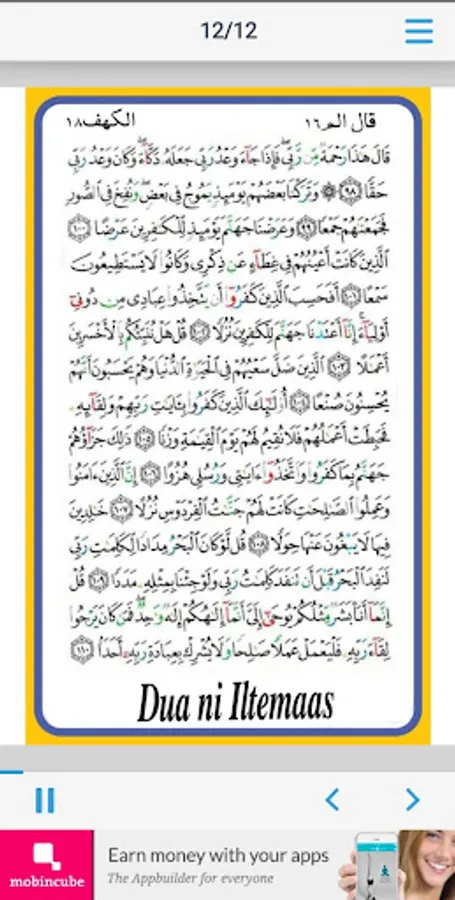 12/12
قال الم ١٦
الكهف ١٨
قَالَ هَٰذَا رَحْمَةٌ مِّن رَّبِّي ۖ فَإِذَا جَاءَ وَعْدُ رَبِّي جَعَلَهُ دَكَّاءَ ۖ وَكَانَ وَعْدُ رَبِّي
حَقًّا ﴿٩٨﴾ ۞ وَتَرَكْنَا بَعْضَهُمْ يَوْمَئِذٍ يَمُوجُ فِي بَعْضٍ ۖ وَنُفِخَ فِي الصُّورِ
فَجَمَعْنَاهُمْ جَمْعًا ﴿٩٩﴾ وَعَرَضْنَا جَهَنَّمَ يَوْمَئِذٍ لِّلْكَافِرِينَ عَرْضًا ﴿١٠٠﴾
الَّذِينَ كَانَتْ أَعْيُنُهُمْ فِي غِطَاءٍ عَن ذِكْرِي وَكَانُوا لَا يَسْتَطِيعُونَ
سَمْعًا ﴿١٠١﴾ أَفَحَسِبَ الَّذِينَ كَفَرُوا أَن يَتَّخِذُوا عِبَادِي مِن دُونِي
أَوْلِيَاءَ ۚ إِنَّا أَعْتَدْنَا جَهَنَّمَ لِلْكَافِرِينَ نُزُلًا ﴿١٠٢﴾ قُلْ هَلْ نُنَبِّئُكُم بِالْأَخْسَرِينَ
أَعْمَالًا ﴿١٠٣﴾ الَّذِينَ ضَلَّ سَعْيُهُمْ فِي الْحَيَاةِ الدُّنْيَا وَهُمْ يَحْسَبُونَ أَنَّهُمْ
يُحْسِنُونَ صُنْعًا ﴿١٠٤﴾ أُولَٰئِكَ الَّذِينَ كَفَرُوا بِآيَاتِ رَبِّهِمْ وَلِقَائِهِ
فَحَبِطَتْ أَعْمَالُهُمْ فَلَا نُقِيمُ لَهُمْ يَوْمَ الْقِيَامَةِ وَزْنًا ﴿١٠٥﴾ ذَٰلِكَ جَزَاؤُهُمْ
جَهَنَّمُ بِمَا كَفَرُوا وَاتَّخَذُوا آيَاتِي وَرُسُلِي هُزُوًا ﴿١٠٦﴾ إِنَّ الَّذِينَ آمَنُوا
وَعَمِلُوا الصَّالِحَاتِ كَانَتْ لَهُمْ جَنَّاتُ الْفِرْدَوْسِ نُزُلًا ﴿١٠٧﴾ خَالِدِينَ
فِيهَا لَا يَبْغُونَ عَنْهَا حِوَلًا ﴿١٠٨﴾ قُل لَّوْ كَانَ الْبَحْرُ مِدَادًا لِّكَلِمَاتِ رَبِّي
لَنَفِدَ الْبَحْرُ قَبْلَ أَن تَنفَدَ كَلِمَاتُ رَبِّي وَلَوْ جِئْنَا بِمِثْلِهِ مَدَدًا ﴿١٠٩﴾ قُلْ
إِنَّمَا أَنَا بَشَرٌ مِّثْلُكُمْ يُوحَىٰ إِلَيَّ أَنَّمَا إِلَٰهُكُمْ إِلَٰهٌ وَاحِدٌ ۖ فَمَن كَانَ يَرْجُوا
لِقَاءَ رَبِّهِ فَلْيَعْمَلْ عَمَلًا صَالِحًا وَلَا يُشْرِكْ بِعِبَادَةِ رَبِّهِ أَحَدًا ﴿١١٠﴾
Dua ni Iltemaas
mobincube
Earn money with your apps
The Appbuilder for everyone